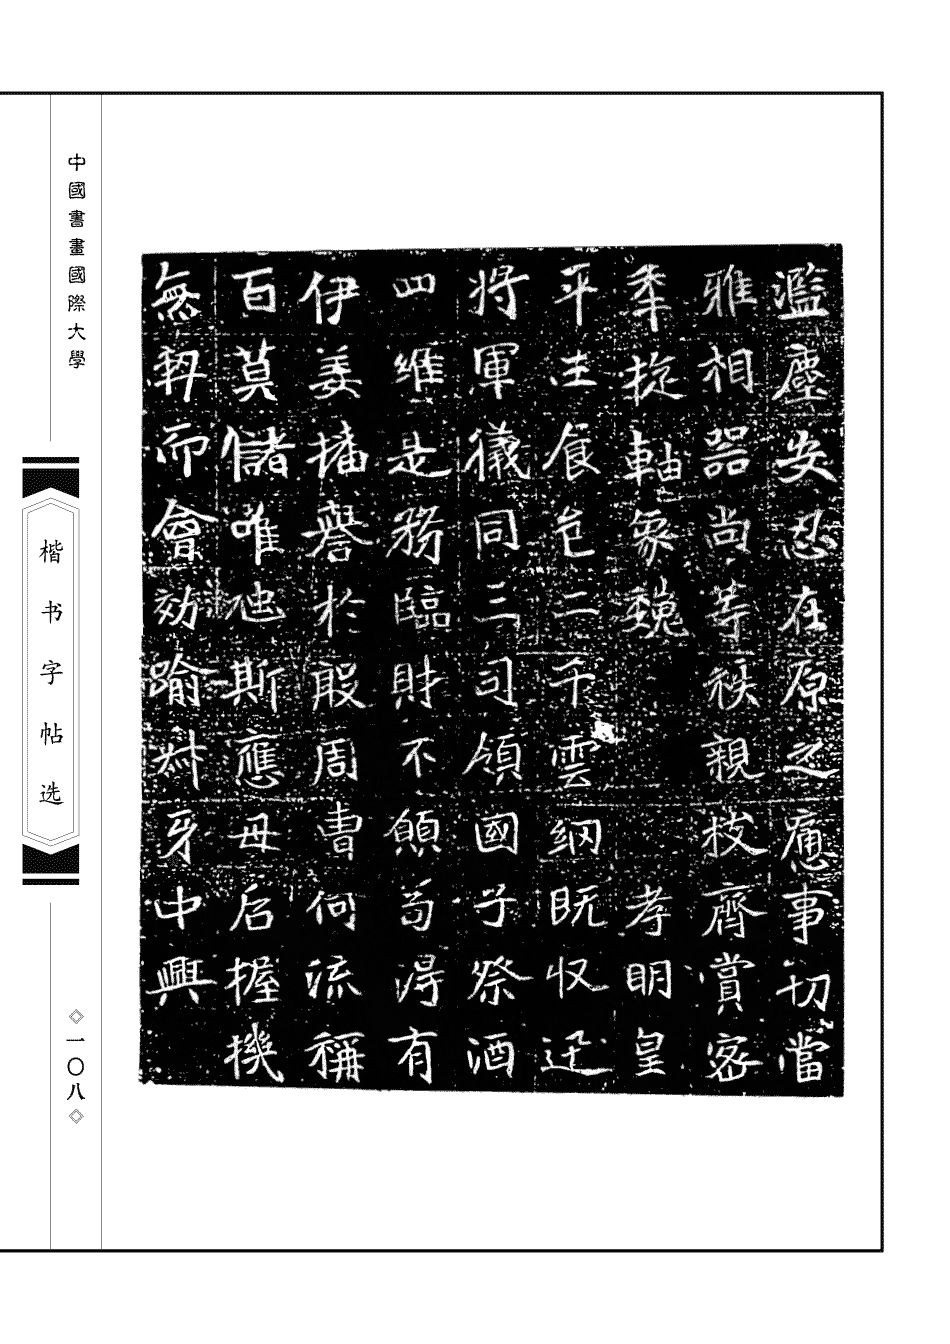 中國書畫國際大學
楷书字帖选
一〇八
濫塵安忍在原之事切當
雅相器尚等親枝齊賞密
奉旋軸象魏　孝明皇
平生食邑二千雲網既收
將軍儀同三司領國子祭酒
四維是務臨財不顧苟得有
伊姜播譽於殷周曹何流稱
百莫儲唯虵斯應母后握機
無而會効踰牙中興